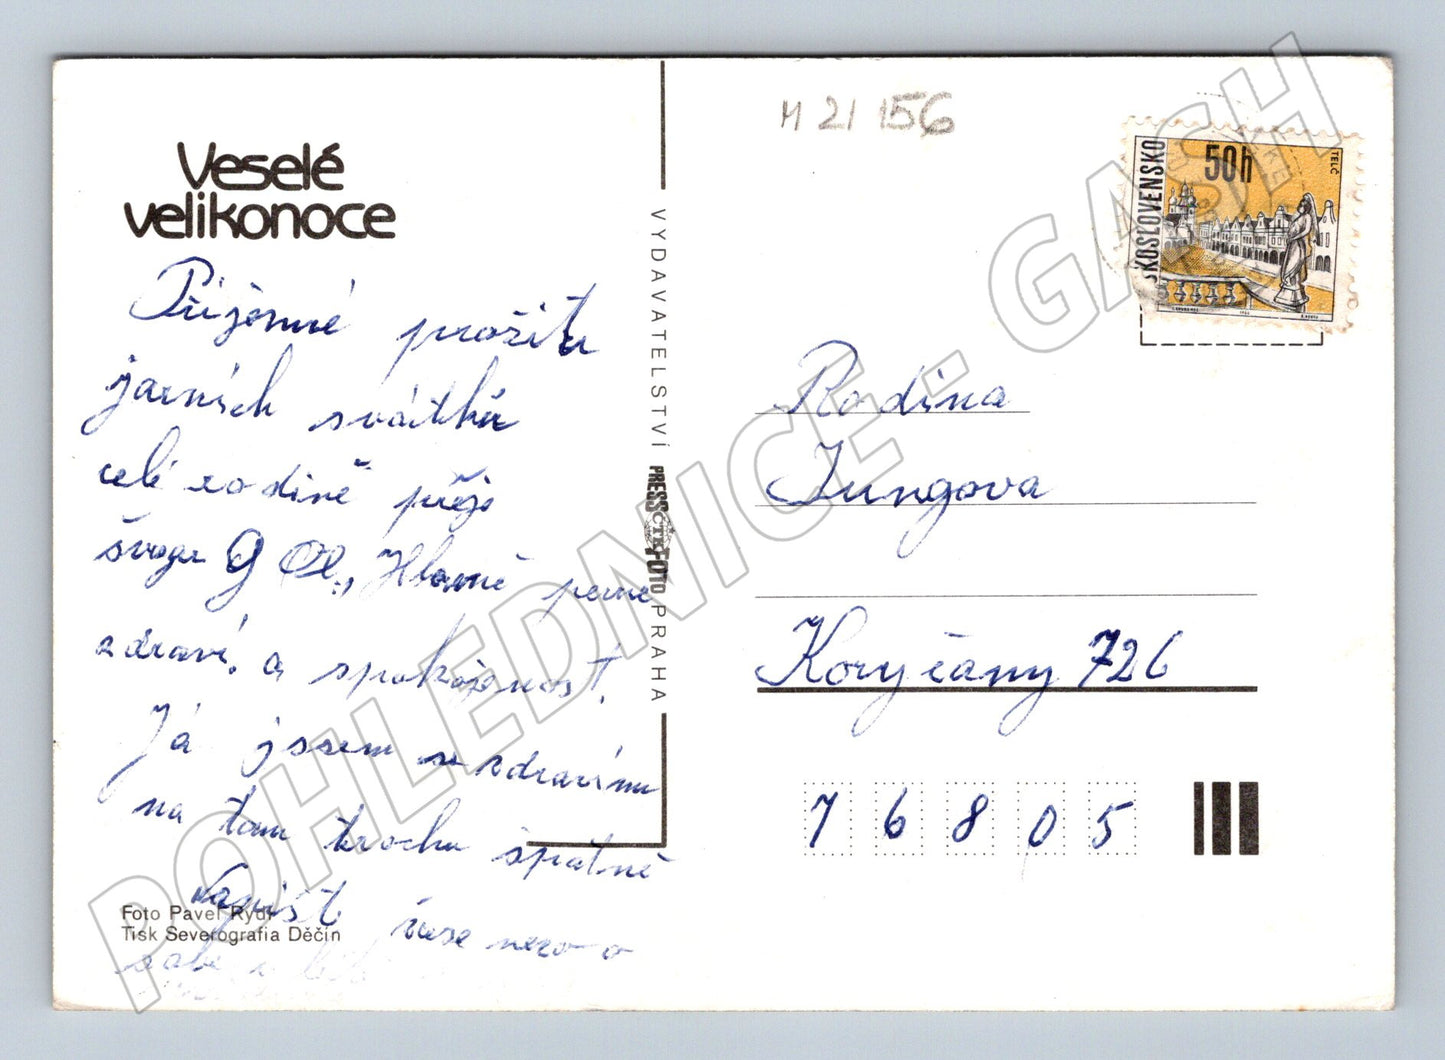 Veselé
velikonoce
Příjemné prožití
jarních svátků
celé rodině přeje
švagr Hlavně pevné
zdraví. a spokojenost.
Já jszem se zdravím
na tom trochu špatně
Napišt
sabe
Foto Pavel Rydl
Tisk Severografia Děčín
VYDAVATELSTVÍ PRESSFOTO PRAHA
ČTK
M 21 156
ČESKOSLOVENSKO
50h
TELČ
Rodina
Jungova
Koryčany 726
76805
POHLEDNICE - GASH